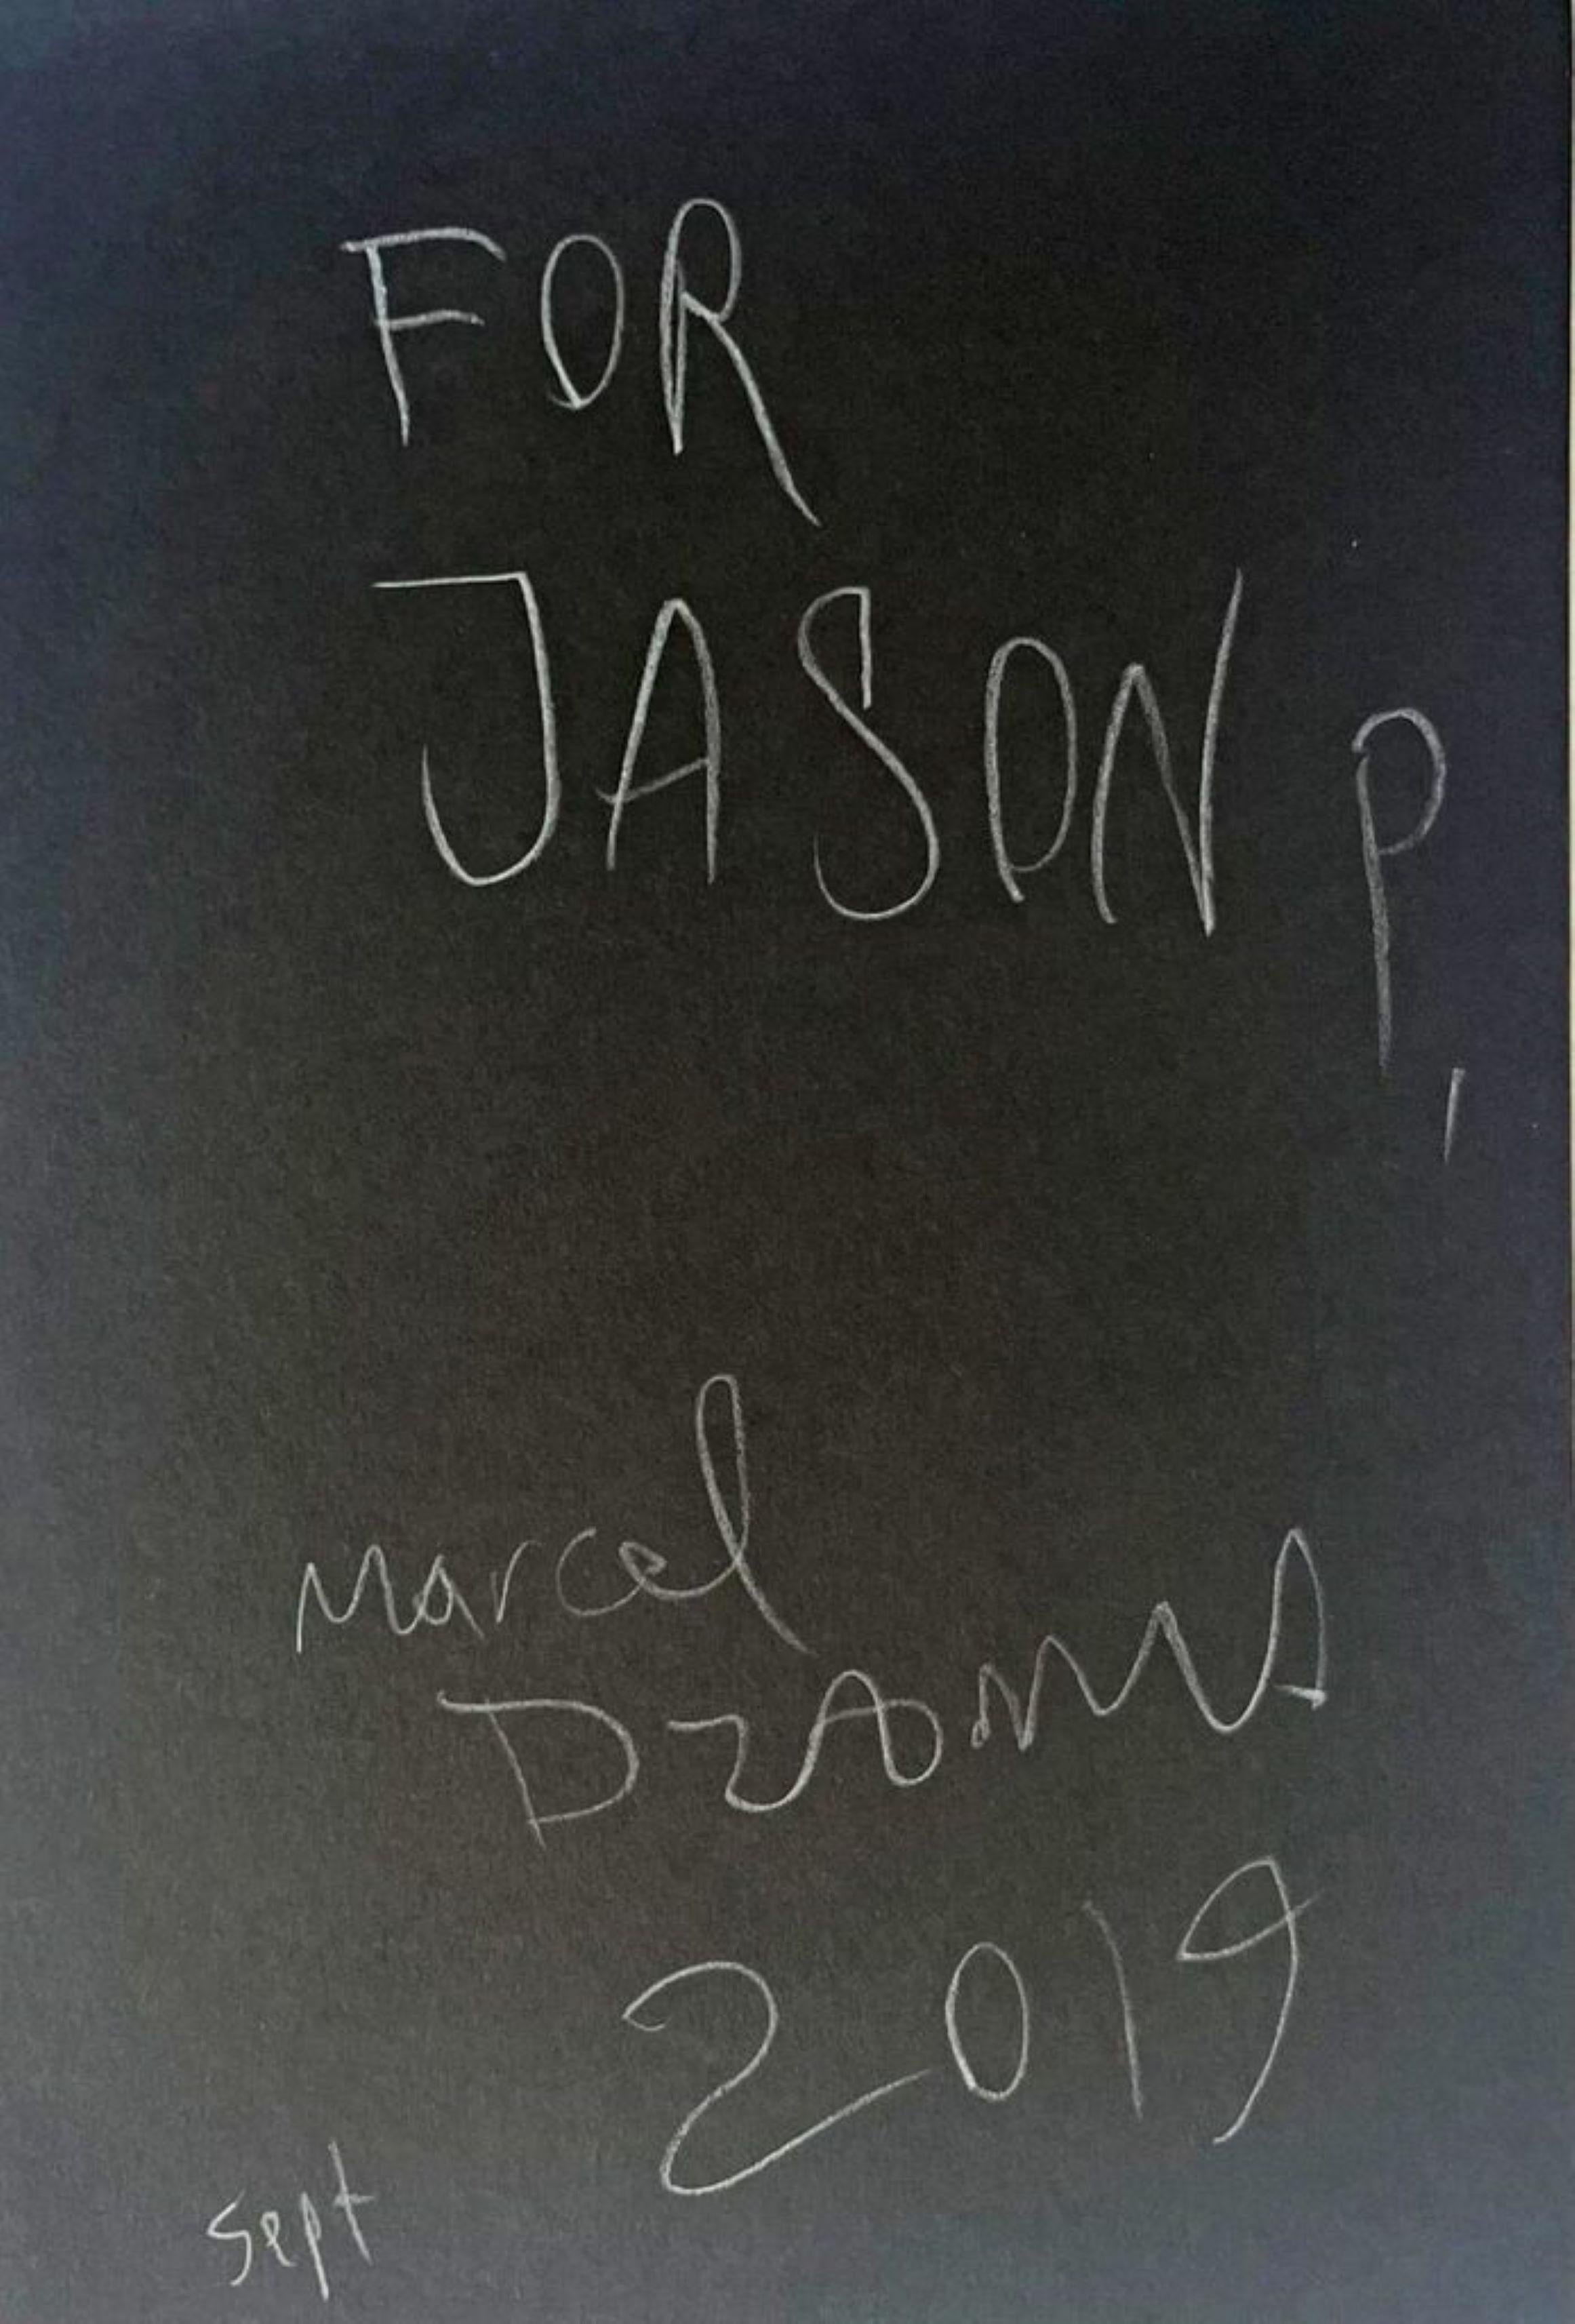 FOR
JASON P.
Marcel
Dzama
2019
Sept